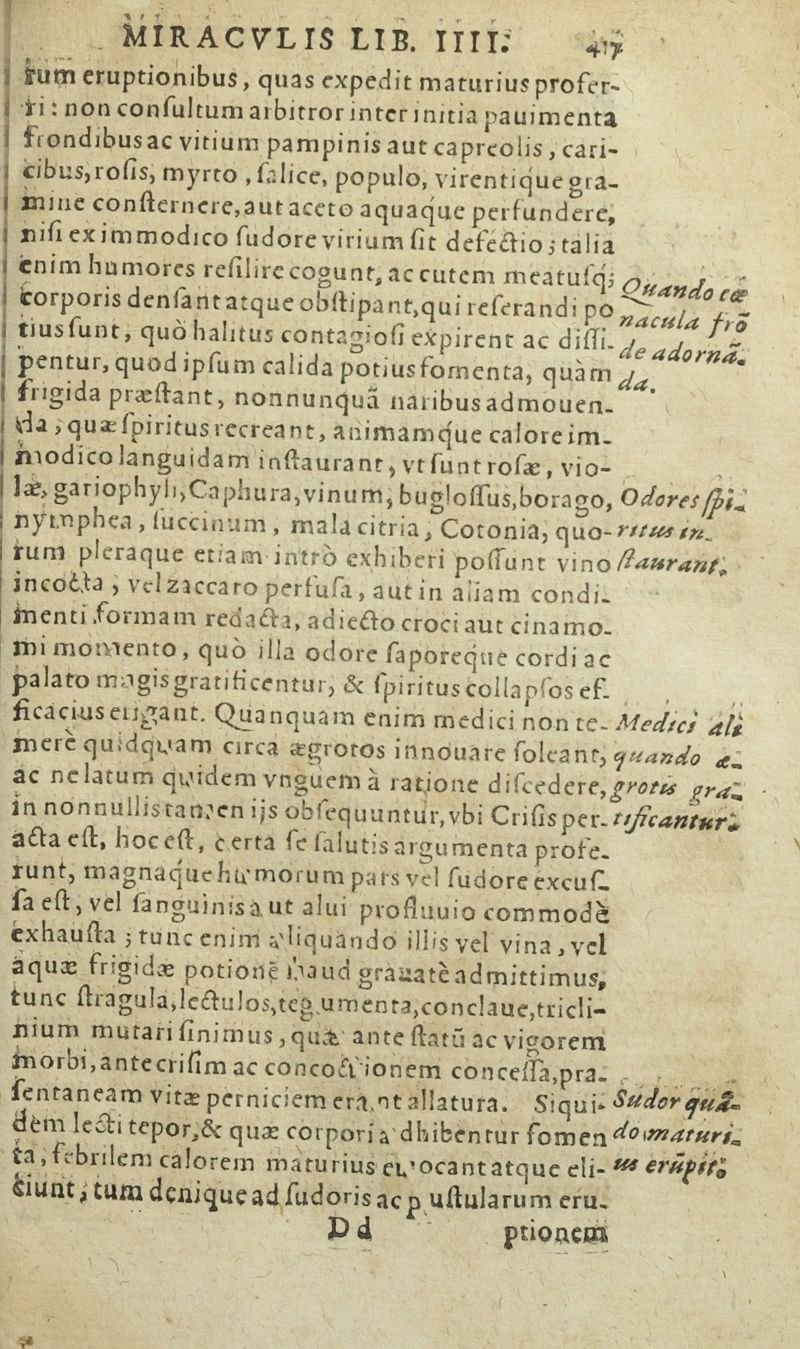 MIRACVLIS LIB. IIII. 417
rum eruptionibus, quas expedit maturius profer-
ri: non conſultum arbitror inter initia pauimenta
frondibus ac vitium pampinis aut capreolis, cari-
cibus, roſis, myrto, ſalice, populo, virentique gra-
mine conſternere, aut aceto aquaque perfundere,
niſi ex immodico ſudore virium ſit defectio; talia
enim humores reſilire cogunt, ac cutem meatuſq;
corporis denſant atque obſtipant, qui reſerandi po
tius ſunt, quò halitus contagioſi expirent ac diſſi-
pentur, quod ipſum calida potius fomenta, quàm
frigida præſtant, nonnunquã naribus admouen-
da, quæ ſpiritus recreant, animamque calore im-
modico languidam inſtaurant, vt ſunt roſæ, vio-
læ, gariophyli, Caphura, vinum, bugloſſus, borago,
nymphea, ſuccinum, mala citria, Cotonia, quo-
rum pleraque etiam intrò exhiberi poſſunt vino
incocta, vel zaccaro perfuſa, aut in aliam condi-
menti formam redacta, adiecto croci aut cinamo-
mi momento, quò illa odore ſaporeque cordi ac
palato magis gratificentur, & ſpiritus collapſos ef-
ficacius erigant. Quanquam enim medici non te-
merè quidquam circa ægrotos innouare ſoleant,
ac ne latum quidem vnguem à ratione diſcedere,
in nonnullis tamen ijs obſequuntur, vbi Criſis per-
acta eſt, hoc eſt, certa ſe ſalutis argumenta profe-
runt, magnaque humorum pars vel ſudore excuſ-
ſa eſt, vel ſanguinis aut alui profluuio commodè
exhauſta; tunc enim aliquando illis vel vina, vel
aquæ frigidæ potionẽ haud grauatè admittimus,
tunc ſtragula, lectulos, tegumenta, conclaue, tricli-
nium mutari ſinimus, quæ ante ſtatũ ac vigorem
morbi, ante criſim ac concoctionem conceſſa, præ-
ſentaneam vitæ perniciem erant allatura. Siqui-
dem lecti tepor, & quæ corpori adhibentur fomen
ta, febrilem calorem maturius euocant atque eli-
ciunt, tum denique ad ſudoris ac puſtularum eru-
Dd ptionem
Quando cœ
nacula frõ
de adornã-
da.
Odores ſpi-
ritus in-
ſtaurant.
Medici ali
quando æ-
grotis gra-
tificantur.
Sudor qui-
do maturi-
us erũpit.